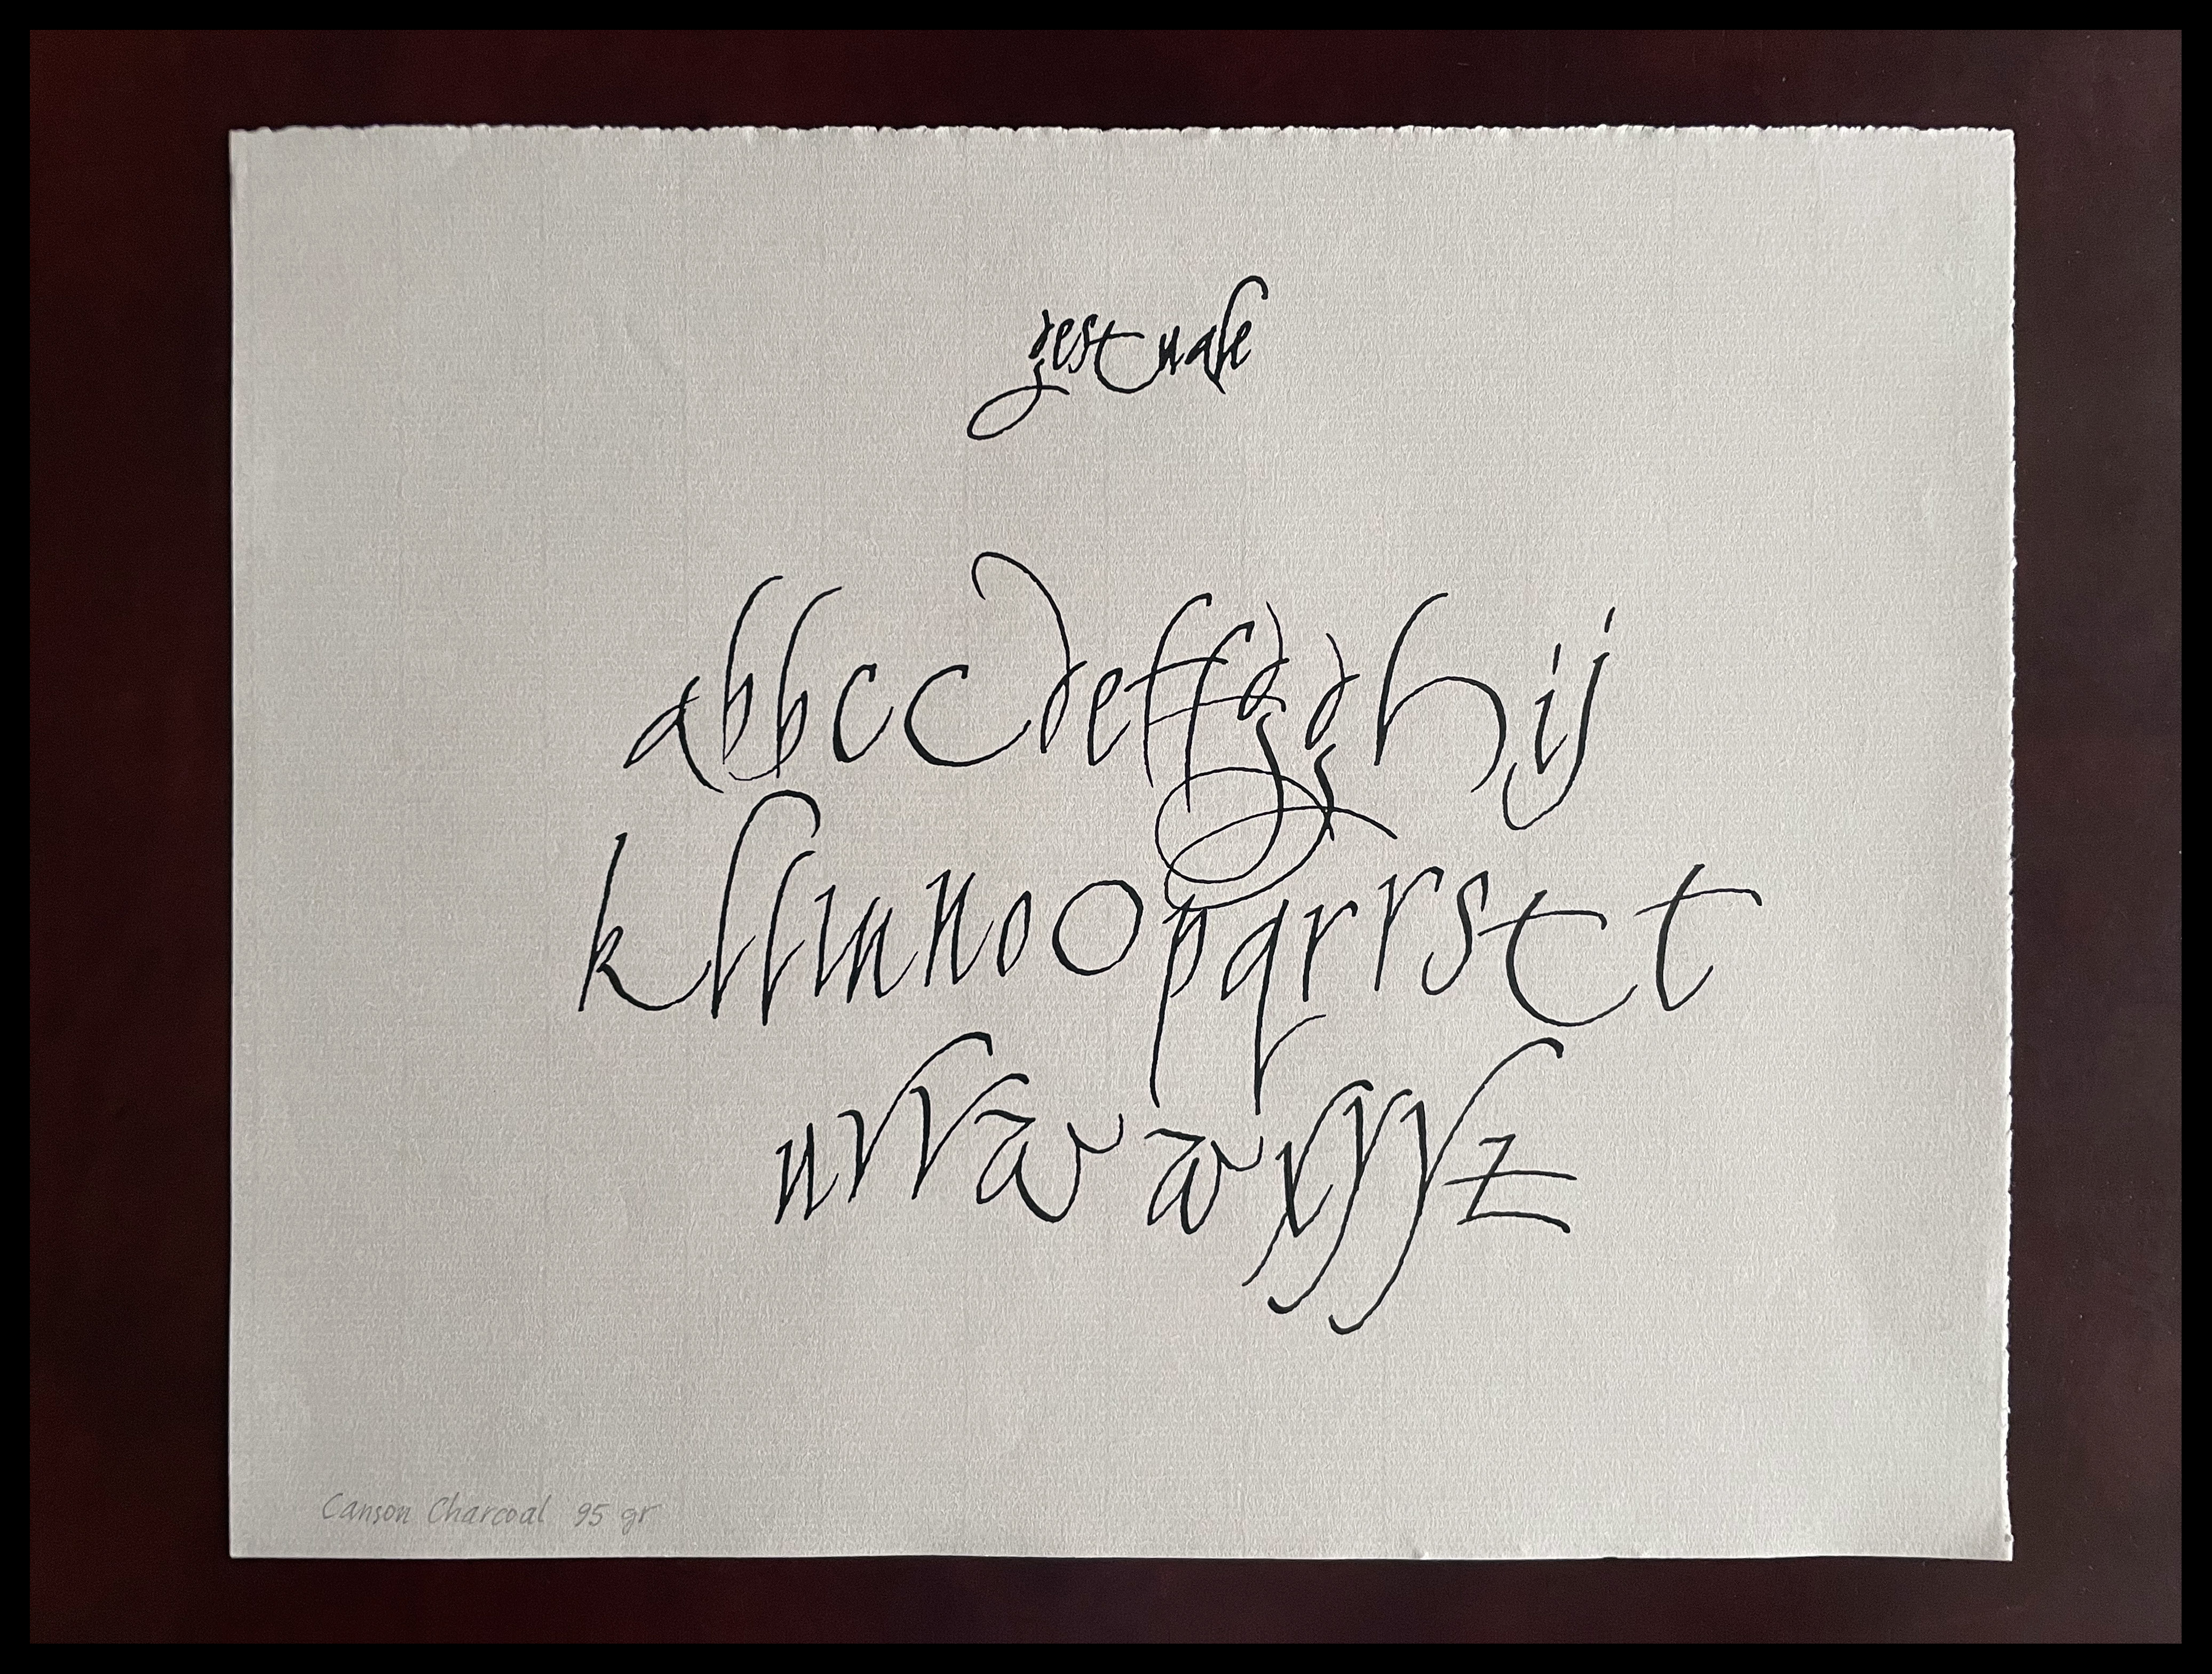 gestuale
abbccdeffgghij
kllmnoopqrrsttt
uvvwwxyyz
Canson Charcoal 95 gr